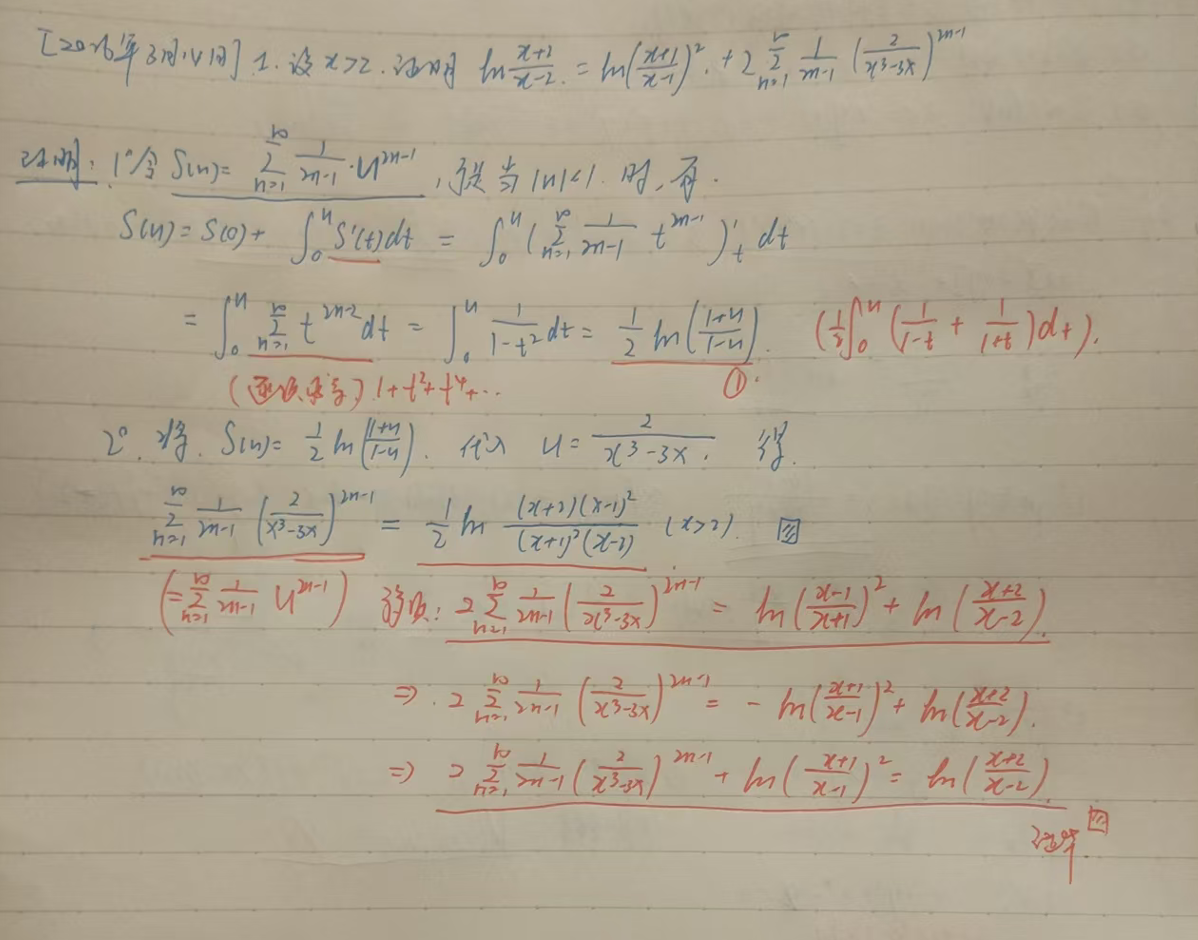 [2026年3月4日] 1. 设 x>2. 证明 ln\frac{x+2}{x-2} = ln(\frac{x+1}{x-1})^2 + 2\sum_{n=1}^{∞} \frac{1}{2n-1} (\frac{2}{x^3-3x})^{2n-1}
证明: 1° 令 S(u) = \sum_{n=1}^{∞} \frac{1}{2n-1} · u^{2n-1}, 当 |u|<1 时, 有.
S(u) = S(0) + \int_0^u S'(t)dt = \int_0^u (\sum_{n=1}^{∞} \frac{1}{2n-1} t^{2n-1})'_t dt
= \int_0^u \sum_{n=1}^{∞} t^{2n-2} dt = \int_0^u \frac{1}{1-t^2} dt = \frac{1}{2} ln(\frac{1+u}{1-u}). (\frac{1}{2}\int_0^u (\frac{1}{1-t} + \frac{1}{1+t})dt).
(逐项求导) 1+t^2+t^4+... ①.
2°. 将. S(u) = \frac{1}{2} ln(\frac{1+u}{1-u}). 代入 u = \frac{2}{x^3-3x}. 得.
\sum_{n=1}^{∞} \frac{1}{2n-1} (\frac{2}{x^3-3x})^{2n-1} = \frac{1}{2} ln \frac{(x+2)(x-1)^2}{(x+1)^2(x-2)} (x>2).
(=\sum_{n=1}^{∞} \frac{1}{2n-1} u^{2n-1}) 移项: 2\sum_{n=1}^{∞} \frac{1}{2n-1} (\frac{2}{x^3-3x})^{2n-1} = ln(\frac{x-1}{x+1})^2 + ln(\frac{x+2}{x-2}).
⇒. 2\sum_{n=1}^{∞} \frac{1}{2n-1} (\frac{2}{x^3-3x})^{2n-1} = - ln(\frac{x+1}{x-1})^2 + ln(\frac{x+2}{x-2}).
⇒ 2\sum_{n=1}^{∞} \frac{1}{2n-1} (\frac{2}{x^3-3x})^{2n-1} + ln(\frac{x+1}{x-1})^2 = ln(\frac{x+2}{x-2})
证毕